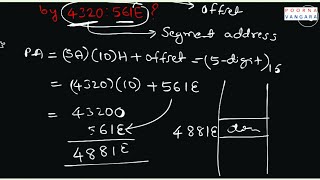 POORNA
VANGARA
offset
by 4320:561E ?
Segment address
P.A) = (SA)(10)H + offset = (5-digit)16
= (4320)(10) + 561E
= 43200
561E
4881E
4881E